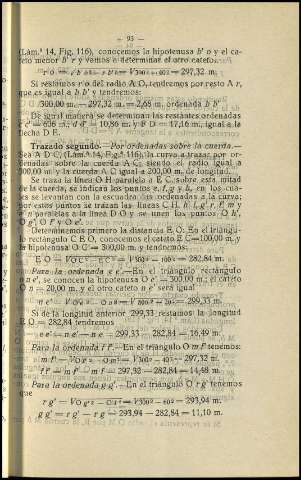 — 95 —
(Lám.ª 14, Fig. 116), conocemos la hipotenusa b' o y el ca-
teto menor b' r y vamos a determinar el otro cateto.
r o = √b' o² - r b'² = √300² - 40² = 297,32 m.
Si restamos r o del radio A O, tendremos por resto A r,
que es igual a b b' y tendremos:
O 300,00 m. — 297,32 m. = 2,68 m. ordenada b b'.
De igual manera se determinan las restantes ordenadas
c c' = 6,06 m.; d d' = 10,86 m. y B D = 17,16 m., igual a la
flecha D E.
Trazado segundo.—Por ordenadas sobre la cuerda.—
Sea A D C, (Lám.ª 14, Fig.ª 116), la curva a trazar por or-
denadas sobre la cuerda A C, siendo el radio igual a
300,00 m. y la cuerda A C igual a 200,00 m. de longitud.
Se traza la línea O H paralela a E C sobre esta mitad
de la cuerda, se indican los puntos e, f, g y h, en los cua-
les se levantan con la escuadra las ordenadas a la curva;
por estos puntos se trazan las líneas C H, h' l, g' r, f' m y
e' n paralelas a la línea D O y se unen los puntos O h',
O g', O f' y O e'.
Determinemos primero la distancia E O: En el triángu-
lo rectángulo C E O, conocemos el cateto E C = 100,00 m. y
la hipotenusa O C = 300,00 m. y tendremos:
E O = √O C² - E C² = √300² + 100² = 282,84 m.
Para la ordenada e e'.—En el triángulo rectángulo
O n e', se conocen la hipotenusa O e' = 300,00 m.; el cateto
O n = 20,00 m. y el otro cateto n e' será igual
n e' = √O e'² - O n² = √300² - 20² = 299,33 m.
Si de la longitud anterior 299,33 restamos la longitud
E O = 282,84 tendremos
e e' = n e' — n e = 299,33 — 282,84 = 16,49 m.
Para la ordenada f f'.—En el triángulo O m f' tenemos:
m f' = √O f'² - O m² = √300² - 40² = 297,32 m.
f f' = m f' — m f = 297,32 — 282,84 = 14,48 m.
Para la ordenada g g'.—En el triángulo O r g' tenemos
que
r g' = √O g'² - O r² = √300² - 60² = 293,94 m.
g g' = r g' — r g = 293,94 — 282,84 = 11,10 m.